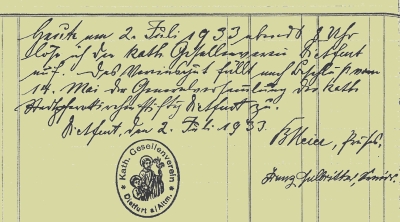 Heute am 2. Juli 1933 abends 8 Uhr
löse ich den kath. Gesellenverein Dietfurt
auf. Das Vereinsgut fällt nach Beschluß vom
14. Mai der Generalversammlung der kath.
Stadtpfarrkirchenstiftung Dietfurt zu.
Dietfurt, den 2. Juli 1933.
BMeier, Präses.
Franz Senior.
Kath. Gesellenverein
Dietfurt a/Altm.